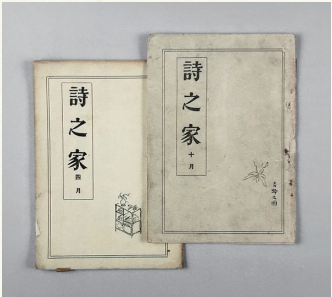 詩之家
四月
詩之家
十月